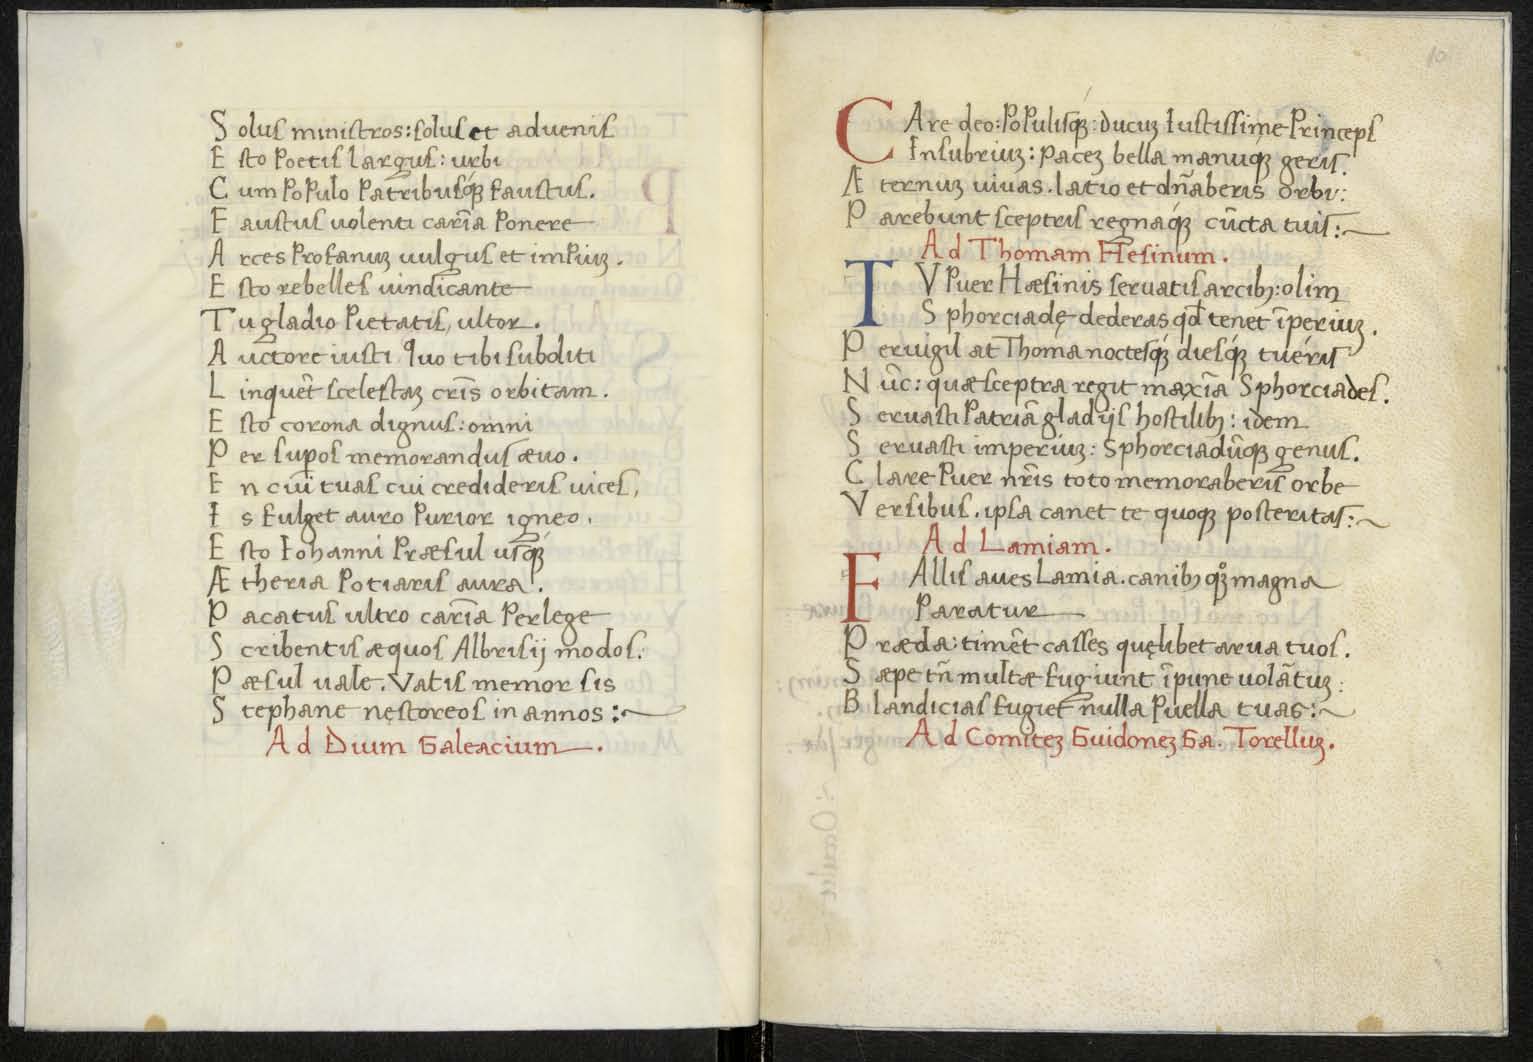 Solus ministros: solus et advenis
Esto Poetis largus: urbi
Cum PoPulo Patribusq́ꝫ faustus.
Faustus uolenti carīa Ponere
Arces Profanuꝫ uulgus et imPiuꝫ.
Esto rebelles uindicante
Tu gladio Pietatis, ultor.
Auctore iusti quo tibi subditi
Linquēt scelestaꝫ crīs orbitam.
Esto corona dignus: omni
Per supos memorandus æuo.
En ciuī tuas cui credideris uices,
Is fulget auro Purior igneo.
Esto Iohanni Præsul usq́ꝫ
Ætheria Potiaris aura.
Pacatus ultro carīa Perlege
Scribentis æquos Albrisij modos.
Pæsul uale. Vatis memor sis
Stephane nęstoreos in annos:~
Ad Dium Galeacium.
10
CAre deo: PoPulisq́ꝫ: ducuꝫ Iustissime Princeps
Insubriuꝫ: paceꝫ bella manuq́ꝫ geris.
Æternuꝫ uiuas. latio et dn̄aberis orbi:
Parebunt sceptris regnaq́ꝫ cūcta tuis:~
Ad Thomam Hesinum.
TV Puer Hæsinis seruatis arcibꝫ: olim
Sphorciadę dederas qd̛ tenet īperiuꝫ.
Peruigil at Thoma noctesq́ꝫ diesq́ꝫ tuéris
Nūc: quæ sceptra regit maxīa Sphorciades.
Seruasti Patriā gladijs hostilibꝫ: idem
Seruasti imperiuꝫ: Sphorciadūqꝫ genus.
Clare Puer nr̄is toto memoraberis orbe
Versibus. ipsa canet te quoqꝫ posteritas:~
Ad Lamiam.
FAllis aues Lamia. canibꝫ qꝫ magna
Paratur
Præda: timēt casses quęlibet arua tuos.
Sæpe tn̄ multæ fugiunt īpune uolātuꝫ:
Blandicias fugiet nulla Puella tuas:~
Ad Comiteꝫ Guidoneꝫ Ga. Torelluꝫ.